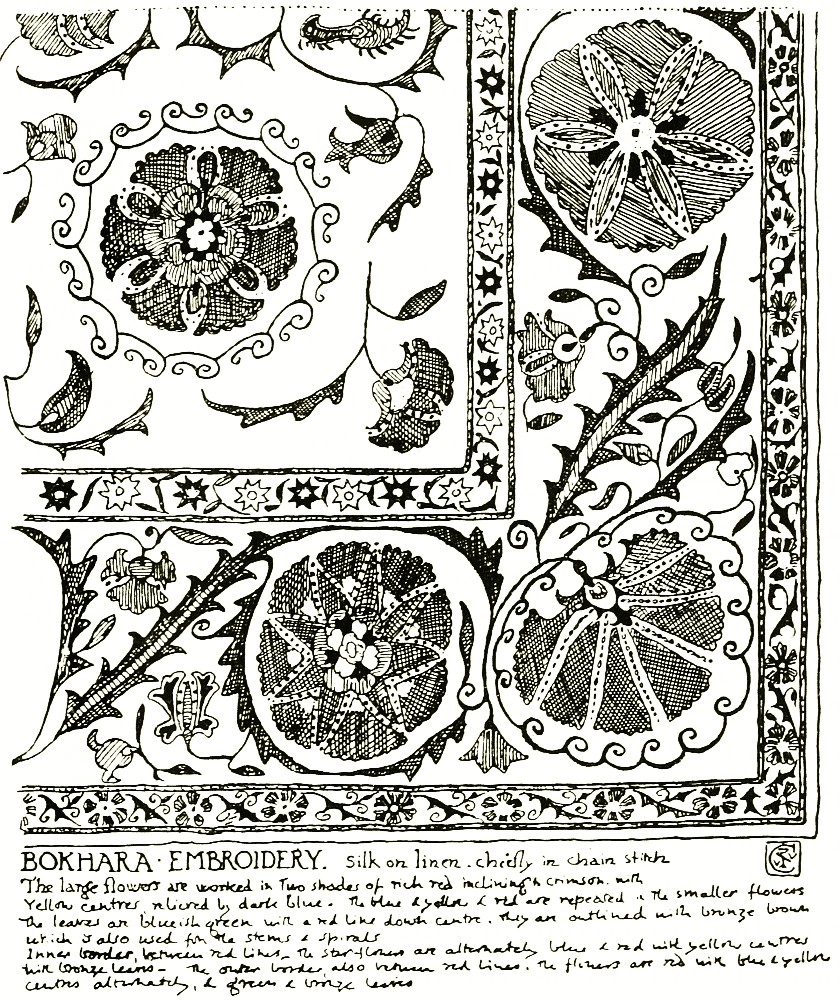 BOKHARA · EMBROIDERY. Silk on linen. chiefly in chain stitch
The large flowers are worked in two shades of rich red inclining to crimson. with
Yellow centres relieved by dark blue. The blue & yellow & red are repeated in the smaller flowers
The leaves are blueish green with a red line down centre. They are outlined with bronze brown
which is also used for the stems & spirals
Inner border, between red lines. The star flowers are alternately blue & red with yellow centres
with bronze leaves - The outer border, also between red lines. The flowers are red with blue & yellow
centres alternately, & green & bronze leaves